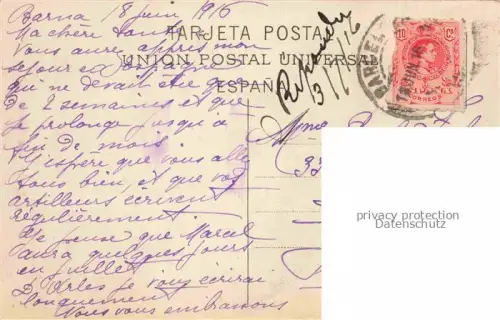 Barna 18 juin 1916
Ma chère tante
Vous aurez appris mon
séjour en Espagne
qui ne devait être que
de 2 semaines et que
je prolonge jusqu'à
fin de mois
J'espère que vous allez
tous bien, et que vos
artilleurs écrivent
régulièrement.
Je pense que Marcel
aura quelques jours
en juillet
D'Arles je vous écrirai
longuement
Vous vous embrassons
TARJETA POSTAL
UNION POSTAL UNIVERSAL
ESPAÑA
3/7/16
10 Cs
CORREOS
Mme
privacy protection
Datenschutz